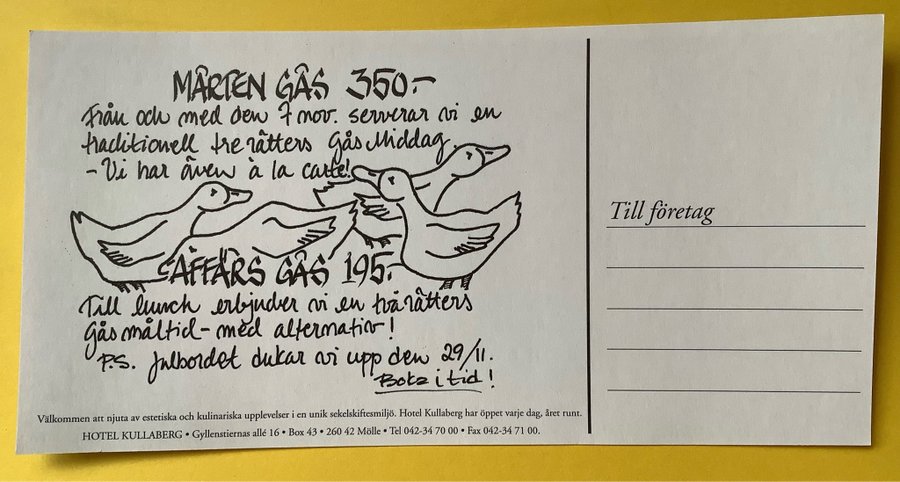 MÅRTEN GÅS 350:-
Från och med den 7 nov. serverar vi en
traditionell tre rätters Gås Middag.
- Vi har även à la carte!
AFFÄRS GÅS 195.-
Till lunch erbjuder vi en två rätters
Gås måltid - med alternativ!
P.S. Julbordet dukar vi upp den 29/11.
Boka i tid!
Välkommen att njuta av estetiska och kulinariska upplevelser i en unik sekelskiftesmiljö. Hotel Kullaberg har öppet varje dag, året runt.
HOTEL KULLABERG • Gyllenstiernas allé 16 • Box 43 • 260 42 Mölle • Tel 042-34 70 00 • Fax 042-34 71 00.
Till företag